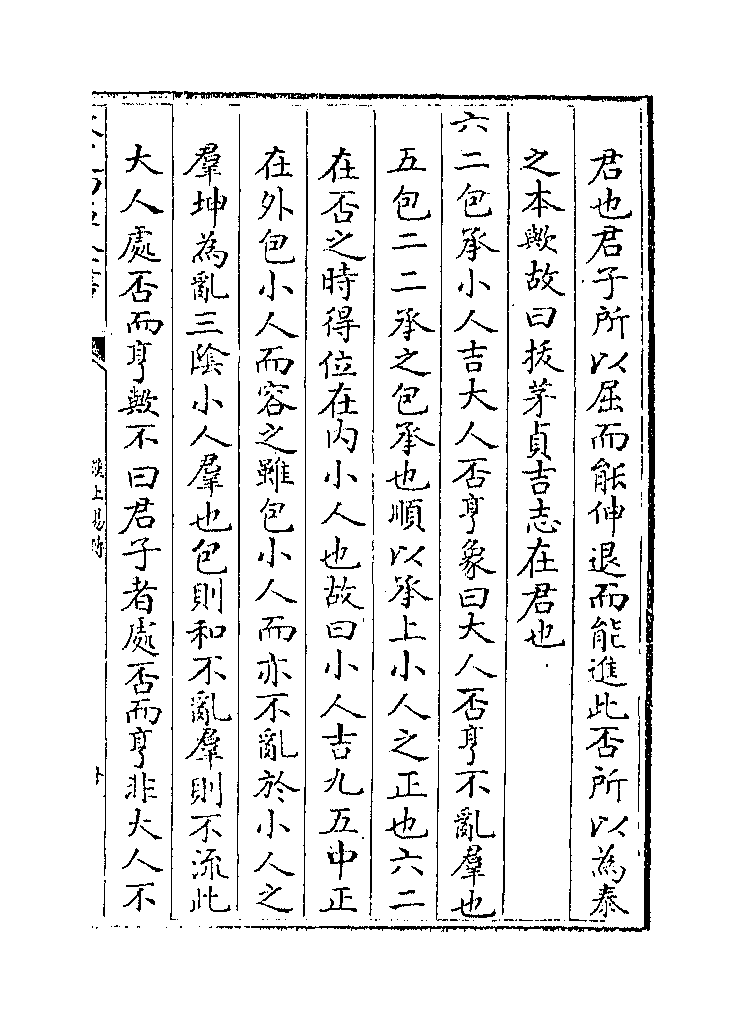 君也君子所以屈而能伸退而能進此否所以為泰
之本歟故曰拔茅貞吉志在君也
六二包承小人吉大人否亨象曰大人否亨不亂羣也
五包二二承之包承也順以承上小人之正也六二
在否之時得位在内小人也故曰小人吉九五中正
在外包小人而容之雖包小人而亦不亂於小人之
羣坤為亂三陰小人羣也包則和不亂羣則不流此
大人處否而亨歟不曰君子者處否而亨非大人不
漢上易傳